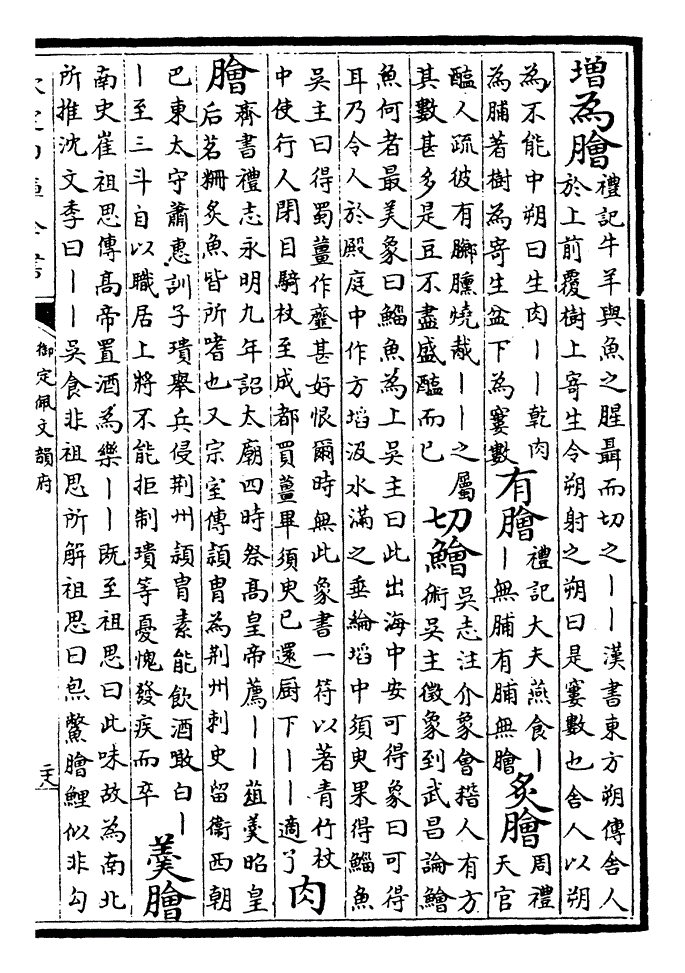 增為膾
禮記牛羊與魚之腥聶而切之——漢書東方朔傳舍人
於上前覆樹上寄生令朔射之朔曰是窶數也舍人以朔
為不能中朔曰生肉——乾肉
為脯著樹為寄生盆下為窶數
有膾
禮記大夫燕食—
—無脯有脯無膾
炙膾
周禮
天官
醢人疏彼有膷臐燒胾——之屬
其數甚多是豆不盡盛醢而已
切鱠
吳志注介象會稽人有方
術吳主徵象到武昌論鱠
魚何者最美象曰鯔魚為上吳主曰此出海中安可得象曰可得
耳乃令人於殿庭中作方埳汲水滿之垂綸埳中須臾果得鯔魚
吳主曰得蜀薑作虀甚好恨爾時無此象書一符以著青竹杖
中使行人閉目騎杖至成都買薑畢須臾已還厨下——適了
肉
膾
齊書禮志永明九年詔太廟四時祭高皇帝薦——葅羮昭皇
后茗粣炙魚皆所嗜也又宗室傳頴胄為荆州刺史留衛西朝
巴東太守蕭惠訓子璝舉兵侵荆州頴胄素能飲酒噉白—
—至三斗自以職居上將不能拒制璝等憂愧發疾而卒
羮膾
南史崔祖思傳高帝置酒為樂——既至祖思曰此味故為南北
所推沈文季曰——吳食非祖思所解祖思曰炰鱉膾鯉似非勾
御定佩文韻府